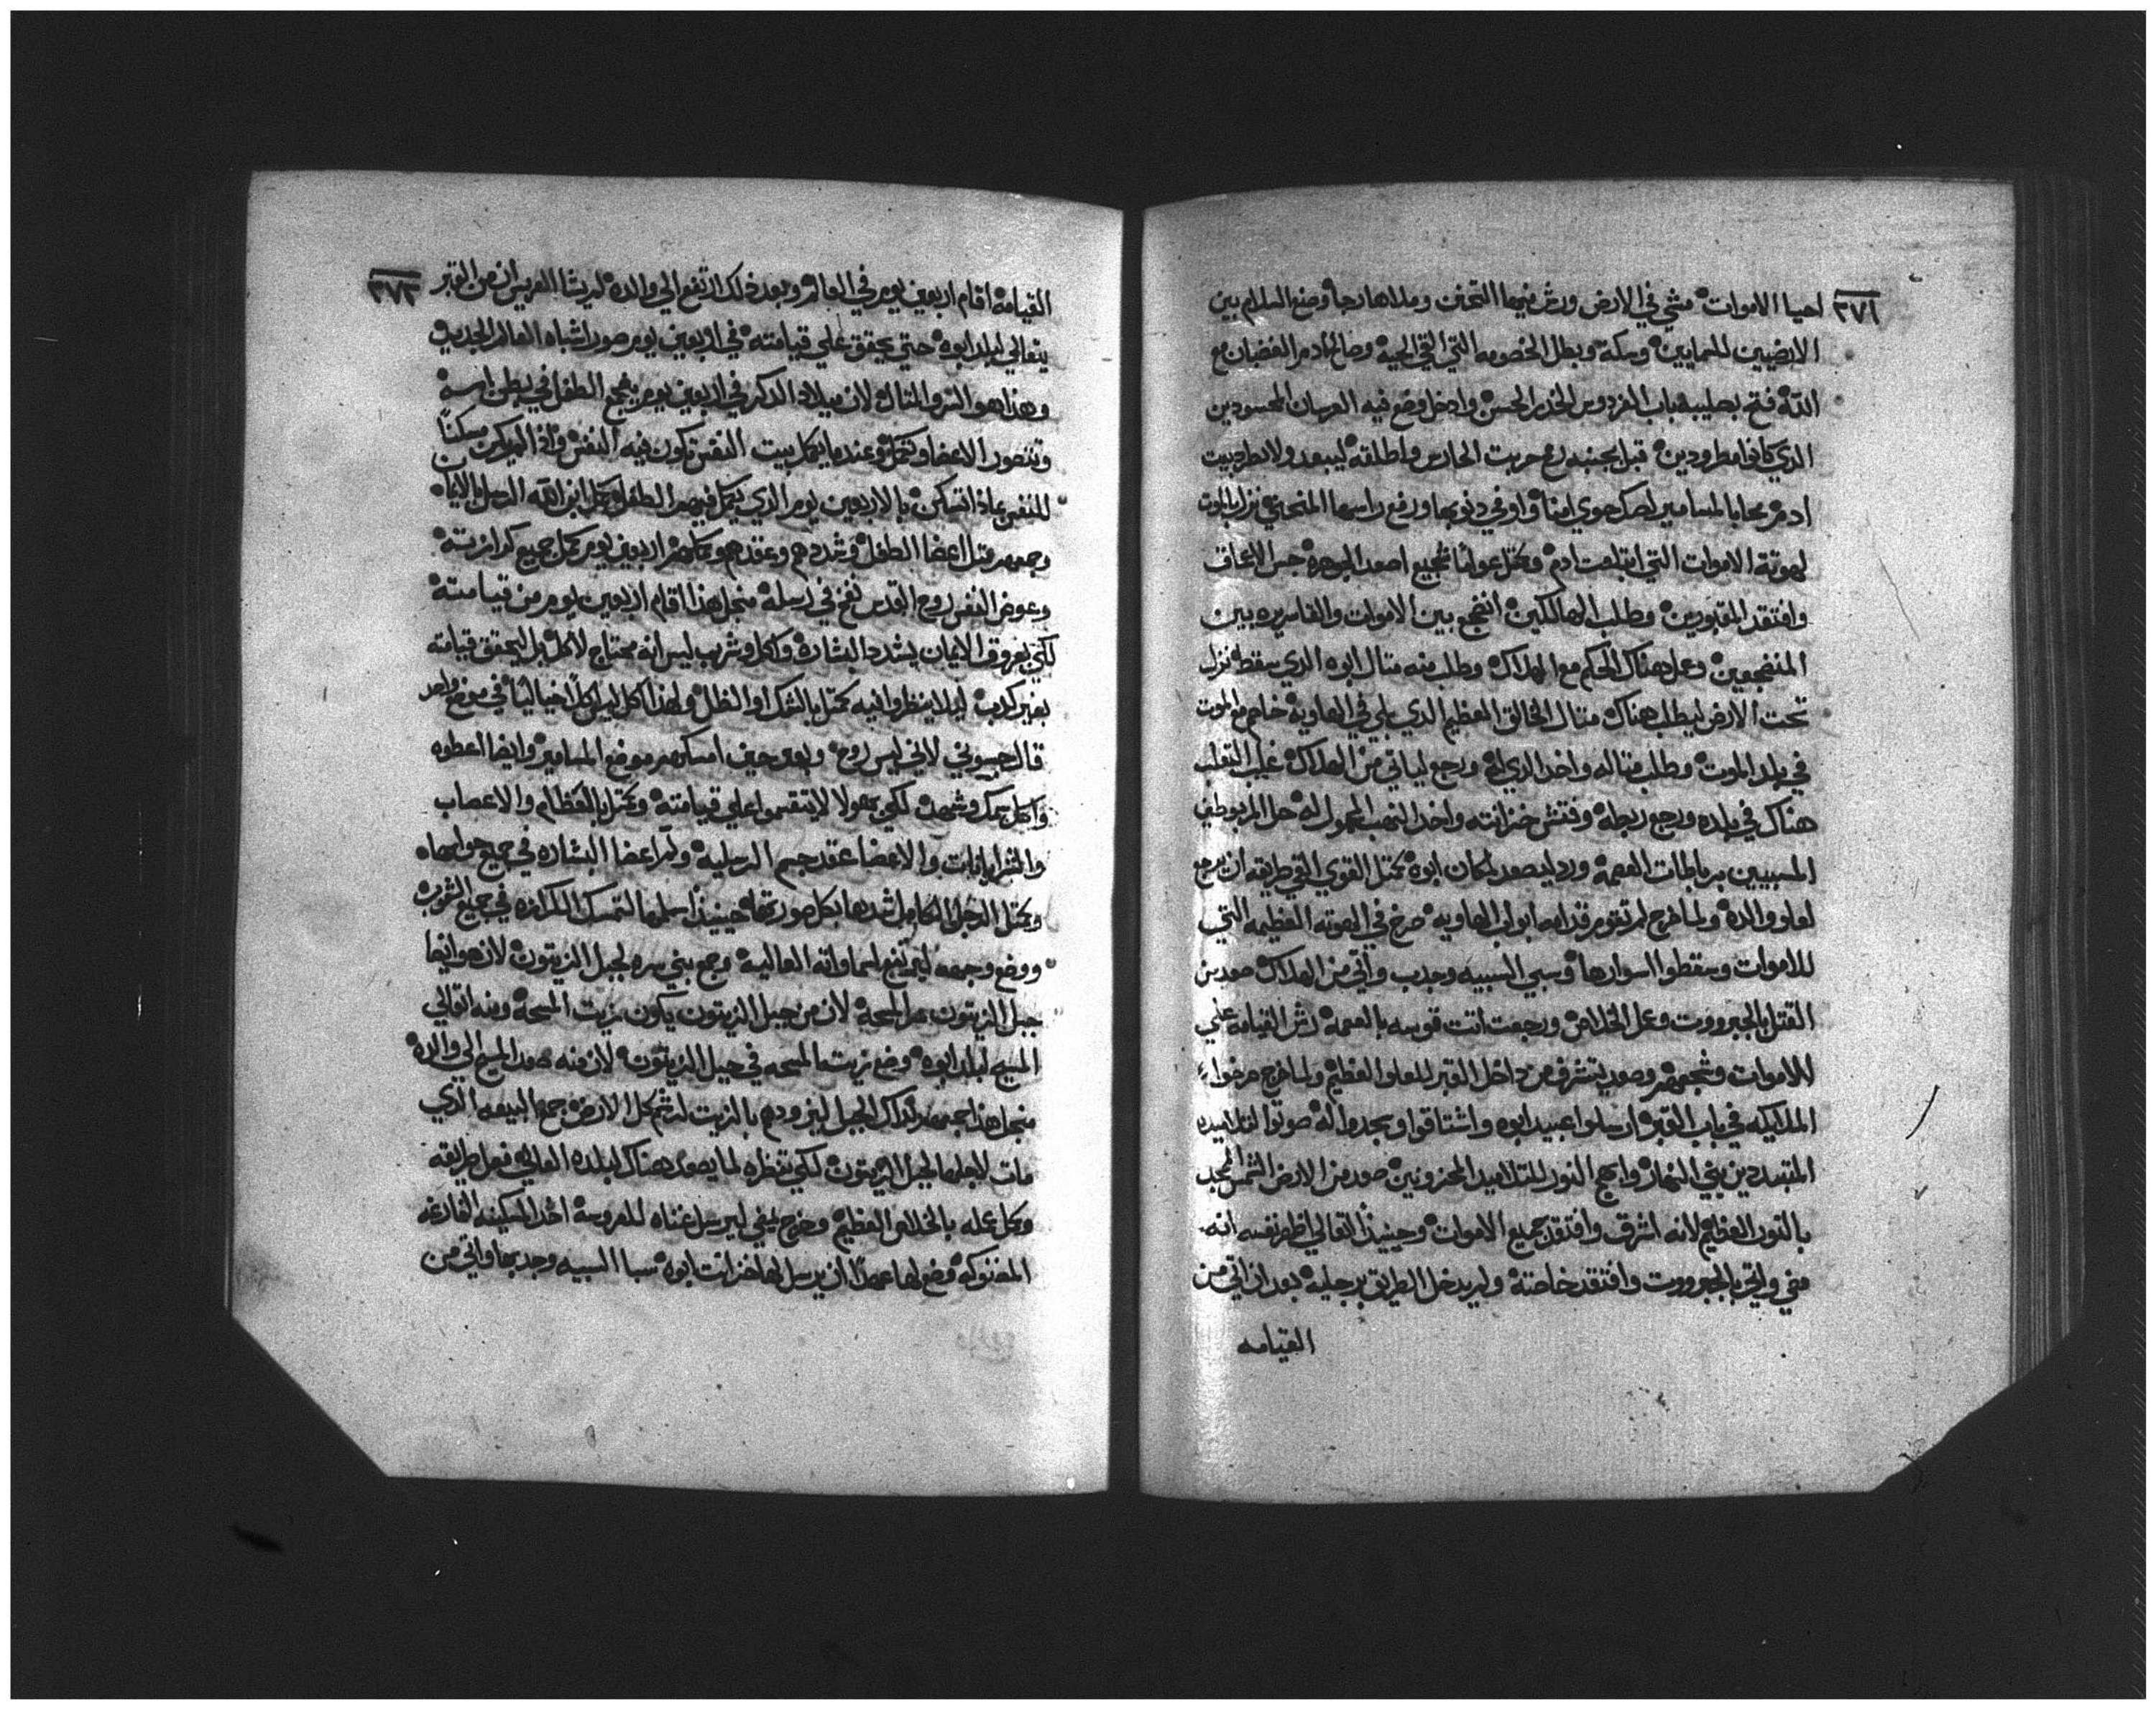 ٣٧٢
احيا الاموات مشي في الارض ورش فيها التحنن وملاها رجا وصنع السلام بين
الارضيين للسمايين وسكة وبطل الخصومه التي القي الحيه وصالح ادم الغضبان مع
الله فتح بصليبه باب الفردوس الخدر الحسن وادخل وضع فيه العرسان المحسودين
الدي كانوا مطرودين قبل بجنبه رمح حربت الحارس واطلقه ليبعد ولا يطرد بيت
ادم محا بالمسامير لصك حوي امنا واوفي دنوبها ورفع راسها المنحني نزل بالموت
لهوتة الاموات التي ابتلعت ادم وكمثل عواما شجيع اصعد الجوهره حبس الاعماق
وافتقد المقبورين وطلب الهالكين انضجع بين الاموات والقاسيره بين
المنضجعين وعمل هناك الحكم مع الهلاك وطلب منه متال ابوه الدي سقط نزل
تحت الارض ليطلب هناك متال الخالق العظيم الدي بلي في الهاويه خاصم مع الموت
في بلد الموت وطلب متاله واخد الدي له ورجع لياتي من الهلاك غلب التعلب
هناك في بلده ورجع ربطه وفتش خزانته واخد النهب المحمول له حل المربوطين
المسبيين برباطات القصمه ورد ليصعد لمكان ابوه كمتل القوي القي طريقه ان يرجع
لعلو والده ولما خرج لم تقوم قدامه ابواب الهاويه صرخ في الهوته العظيمه التي
للاموات وسقطوا اسوارها وسبي السبيه وجدب واتي من الهلاك صعد من
القتل بالجبرووت وعمل الخلاص ورجعت اتت قوسه بالعصمه رش القيامه علي
الاموات وشجعهم وصعد يتشرف من داخل القبر للعلو العظيم ولما خرج صرخوا
الملايكه في باب القبر ارسلوا عبيد ابوه واشتاقوا وسجدوا له صوتوا لتلاميده
المتبددين بغي النهار وابهج النور للتلاميد المحزونين صعد من الارض الشمس لمجد
بالنور العظيم لانه اشرق وافتقد جميع الاموات وحينيذ القالي اظهر نفسه انه
مضي واتي بالجبرووت وافتقد خاصته ولم يدخل الطريق برجليه بعد ان اتي من
القيامه
٣٧٣
القيامه اقام اربعين يوم في العالم وبعد ذلك ارتفع الي والده لم يشا العريس ان من القبر
يتعالي لبلد ابوه حتي يحقق علي قيامته في اربعين يوم صور اشباه العالم الجديد
وهذا هو السر والمتال لان ميلاد الدكر في اربعين يوم ينجح الطفل في بطن امه
وتتصور الاعضا وتكمل وعنده يكمل بيت النفس تكون فيه النفس واذا لم يكون مسكنا
للنفس مادا تسكن بالاربعين يوم الدي يكمل فيهم الطفل كمل ابن الله الرسل بالايمان
وجمعهم متل اعضا الطفل وشددهم وعقدهم وكملهم اربعين يوم كمل جميع كرازته
وعوض النفس روح القدس نفخ في رسله منجل هذا اقام اربعين يوم من قيامته
لكي بعروق الايمان يشدد البشاره واكل وشرب ليس انه محتاج لاكل بل ليحقق قيامته
بغير كدب ليلا ينظروا فيه كمتل بالشك او الظل ولهذا اكل ليس اكلا خياليا في موضع واحد
قال جسوني لاني ليس روح وبعد حين امسكهم موضع المسامير وايضا اعطوه
واكل سمك وشهد لكي بهولا لا تنقسموا علي قيامته وكمتل بالعظام والاعصاب
والشريانات والاعضا عقد جسم الرسليه ولم اعضا البشاره في جميع حواسها
وكمتل الرجل الكامل شدها بكل صورتها حينيذ اسلمها لتمسك الكرازه في جميع الشعوب
ووضع وجهه ليرتفع لسماواته العاليه وجمع بني سره لجبل الزيتون لان هو ايضا
جبل الزيتون سر المسحه لان من جبل الزيتون يكون زيت المسحه ومنه اتعالي
المسيح لبلد ابوه وضع زيت المسحه في جبل الزيتون لان منه صعد المسيح الي والده
منجل هذا جمعهم لداك الجبل ليزودهم بالزيت لرشم كل الارض جمع البيعه الذي
مات لاجلها لجبل الزيتون لكي تنظره لما يصعد هناك لبلده العالي فعل طريقه
وكمل عمله بالخلاص العظيم وخرج يمضي ليرسل غناه للعروسه اخد المسكينه الفارغه
المتروكه وضع لها عهدا ان يرسل لها خزانت ابوه سبا السبيه وجدبها واتي من